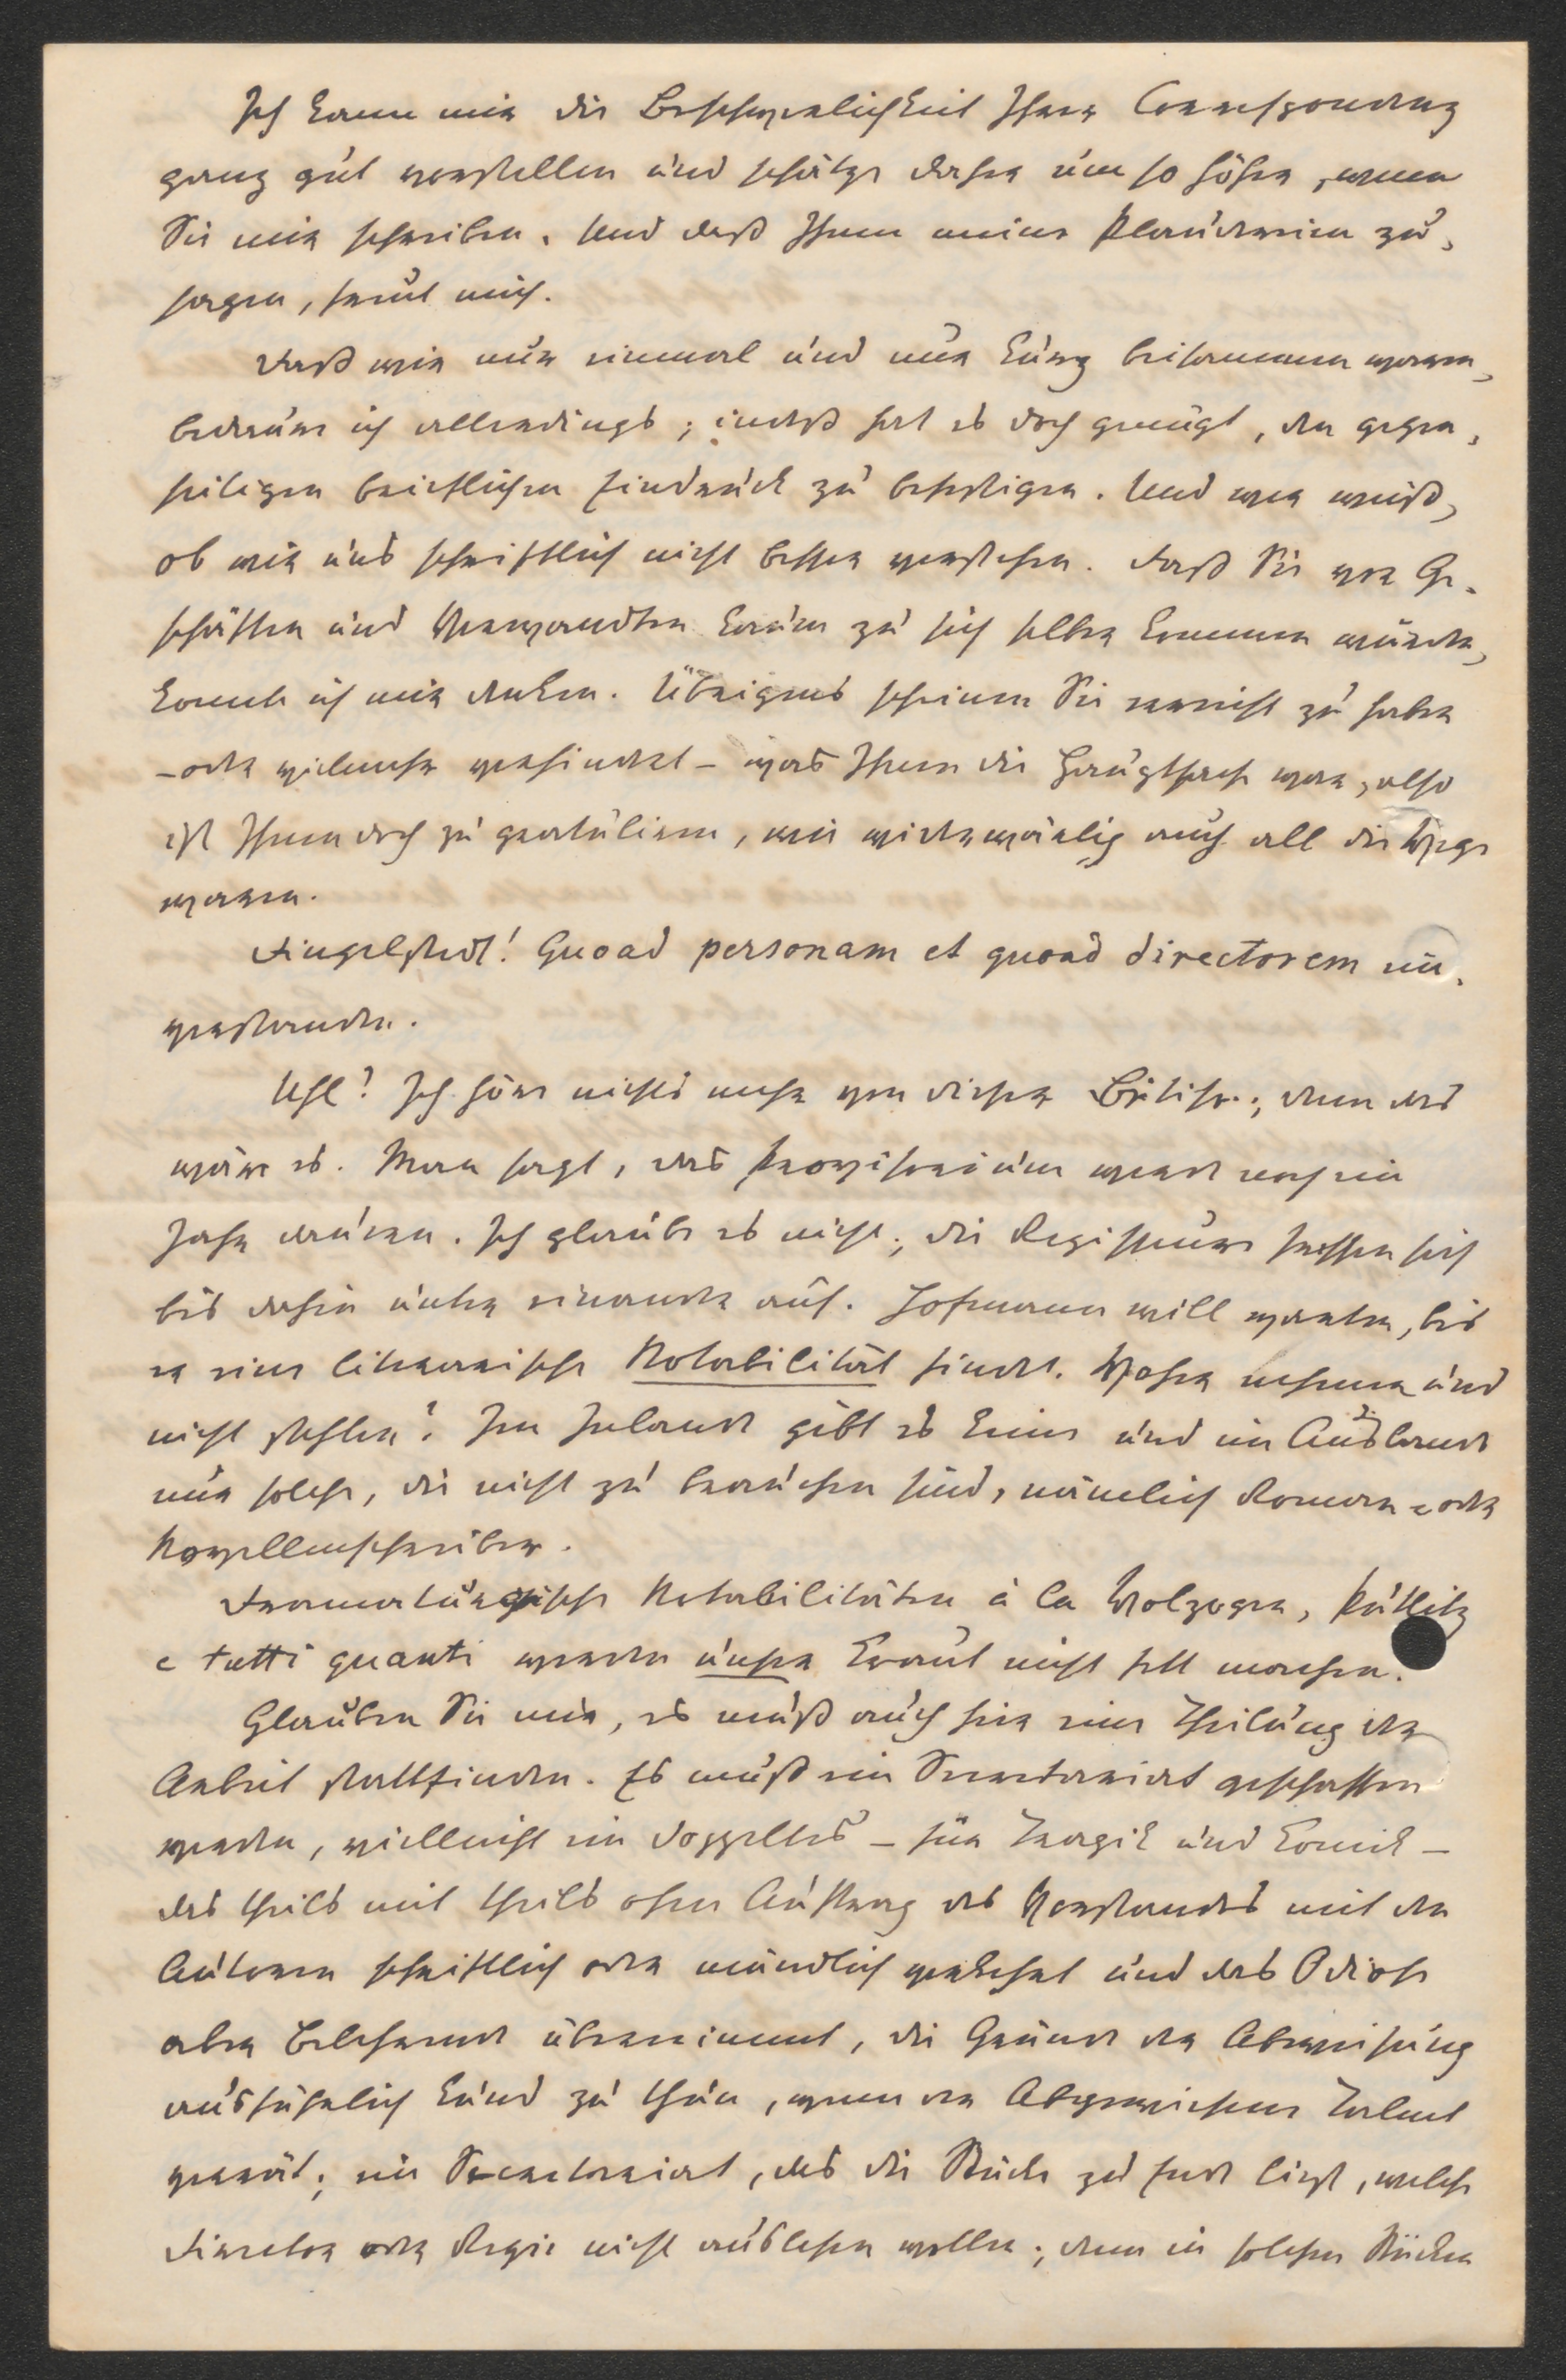 Ich kann mir die Beschwerlichkeit Ihrer Correspondenz
ganz gut vorstellen und schätze daher um so höher, wenn
Sie mir schreiben. Und daß Ihnen meine Plaudereien zu-
sagen, freut mich.
Daß wir nur einmal und nur kurz beisammen waren,
bedaure ich allerdings; indeß hat es doch genügt, den gegen-
seitigen brieflichen Eindruck zu befestigen. Und wer weiß,
ob wir uns schriftlich nicht besser verstehen. Daß Sie vor Ge-
schäften und Verwandten kaum zu sich selber kommen würden,
konnte ich mir denken. Übrigens scheinen Sie erreicht zu haben
- oder vielmehr verhindert - was Ihnen die Hauptsache war, also
ist Ihnen doch zu gratuliren, wie widerwärtig auch all die Wege
waren.
Dingelstedt! Quoad personam et quoad directorem ein-
verstanden.
Uhl? Ich höre nichts mehr von dieser ; denn das
wäre es. Man sagt, das Provisorium werde noch ein
Jahr dauern. Ich glaube es nicht; die Regisseure fressen sich
bis dahin unter einander auf. Hofmann will warten, bis
er eine literarische Notabilität findet. Woher nehmen und
nicht stehlen? Im Inlande gibt es keine und im Auslande
nur solche, die nicht zu brauchen sind, nämlich Roman- oder
Novellenschreiber.
Dramaturgische Notabilitäten à la Wolzogen, Putlitz
e tutti quanti werden unser Kraut nicht fett machen.
Glauben Sie mir, es muß auch hier eine Theilung der
Arbeit stattfinden. Es muß ein Secretariat geschaffen
werden, vielleicht ein doppeltes - für Tragik und Komik -
das theils mit theils ohne Auftrag des Vorstandes mit den
Autoren schriftlich oder mündlich verkehrt und das Odiose
aber Belehrende übernimmt, die Gründe der Abweisung
ausführlich kund zu thun, wenn der Abgewiesene Talent
verrät; ein Secretariat, das die Stücke zu Ende liest, welche
Director oder Regie nicht auslesen wollen; denn in solchen Stücken